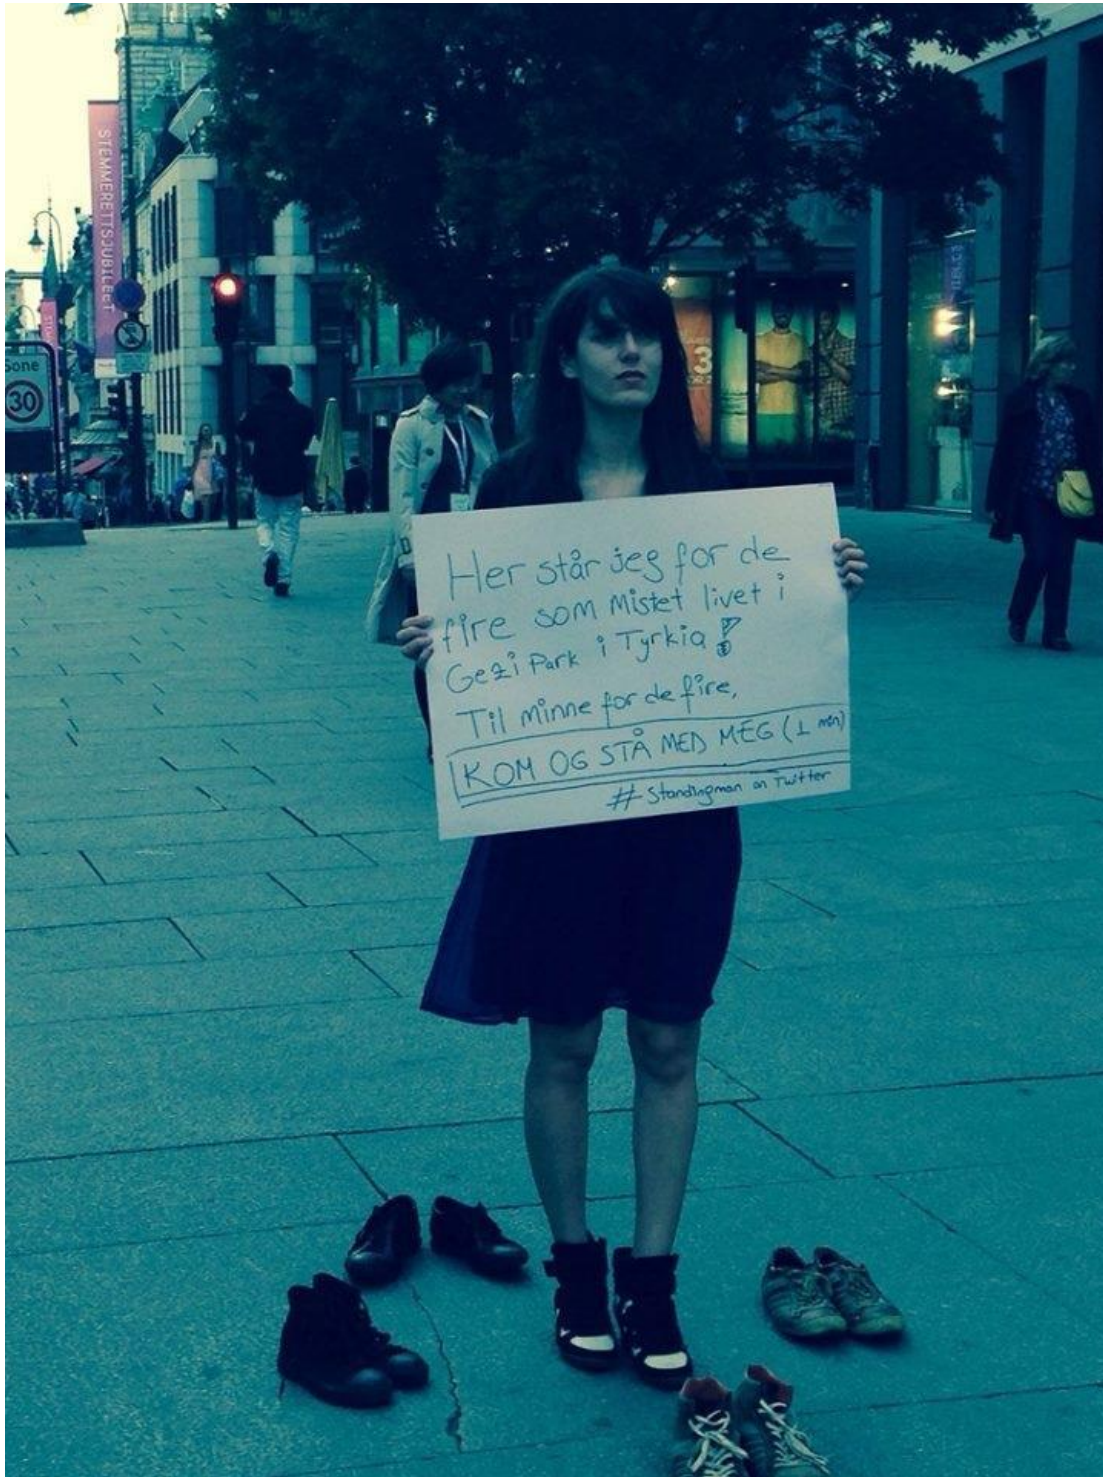 STEMMERETTSJUBILEET
Sone
30
3
Her står jeg for de
fire som mistet livet i
Gezi Park i Tyrkia !
Til minne for de fire,
KOM OG STÅ MED MEG (1 min)
# Standingman on Twitter